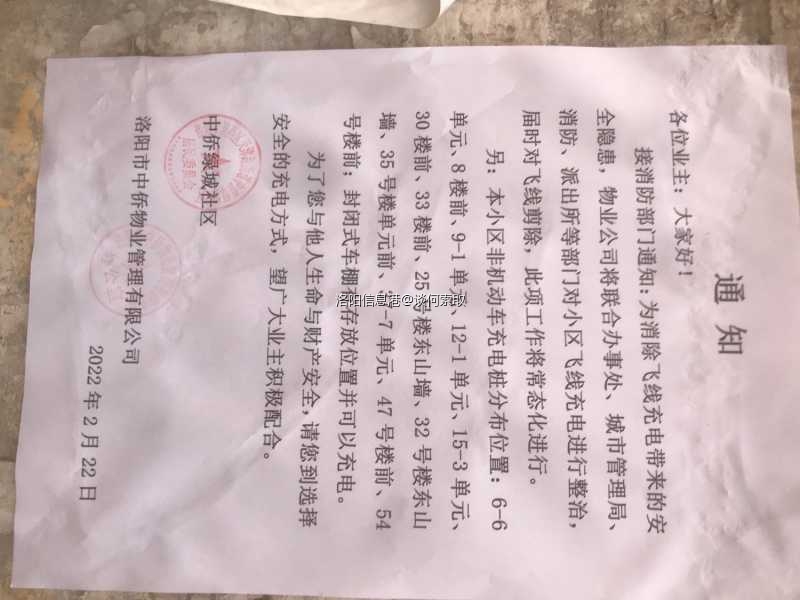 通知
各位业主：大家好！
接消防部门通知：为消除飞线充电带来的安
全隐患，物业公司将联合办事处、城市管理局、
消防、派出所等部门对小区飞线充电进行整治，
届时对飞线剪除，此项工作将常态化进行。
另：本小区非机动车充电桩分布位置：6-6
单元、8楼前、9-1单元、12-1单元、15-3单元、
30楼前、33楼前、25号楼东山墙、32号楼东山
墙、35号楼单元前、 -7单元、47号楼前、54
号楼前；封闭式车棚有存放位置并可以充电。
为了您与他人生命与财产安全，请您到选择
安全的充电方式，望广大业主积极配合。
中侨绿城社区
洛阳市中侨物业管理有限公司
2022年2月22日
洛阳信息港@谈何索取